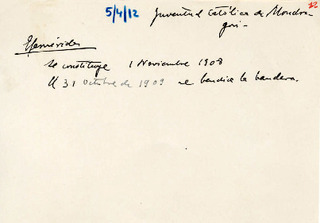 5/4/12 Juventud Católica de Mondra-
gón -
Efemérides
Se constituye 1 Noviembre 1908
El 31 Octubre de 1909 se bendice la bandera.